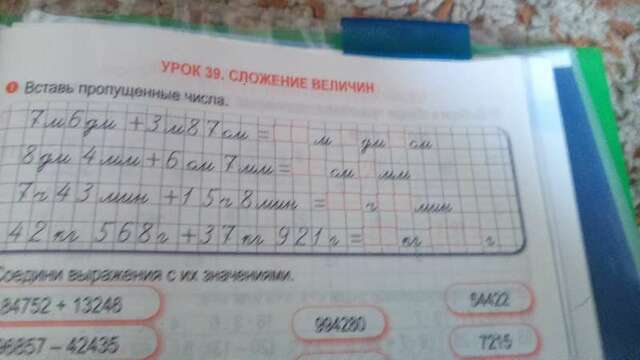 УРОК 39. СЛОЖЕНИЕ ВЕЛИЧИН
1 Вставь пропущенные числа.
7 м 6 дм + 3 м 87 см = м дм см
8 дм 4 мм + 6 см 7 мм = см мм
7 ч 43 мин + 15 ч 8 мин = ч мин
42 кг 568 г + 37 кг 921 г = кг г
Соедини выражения с их значениями.
84752 + 13246
994280
54422
96857 – 42435
7215